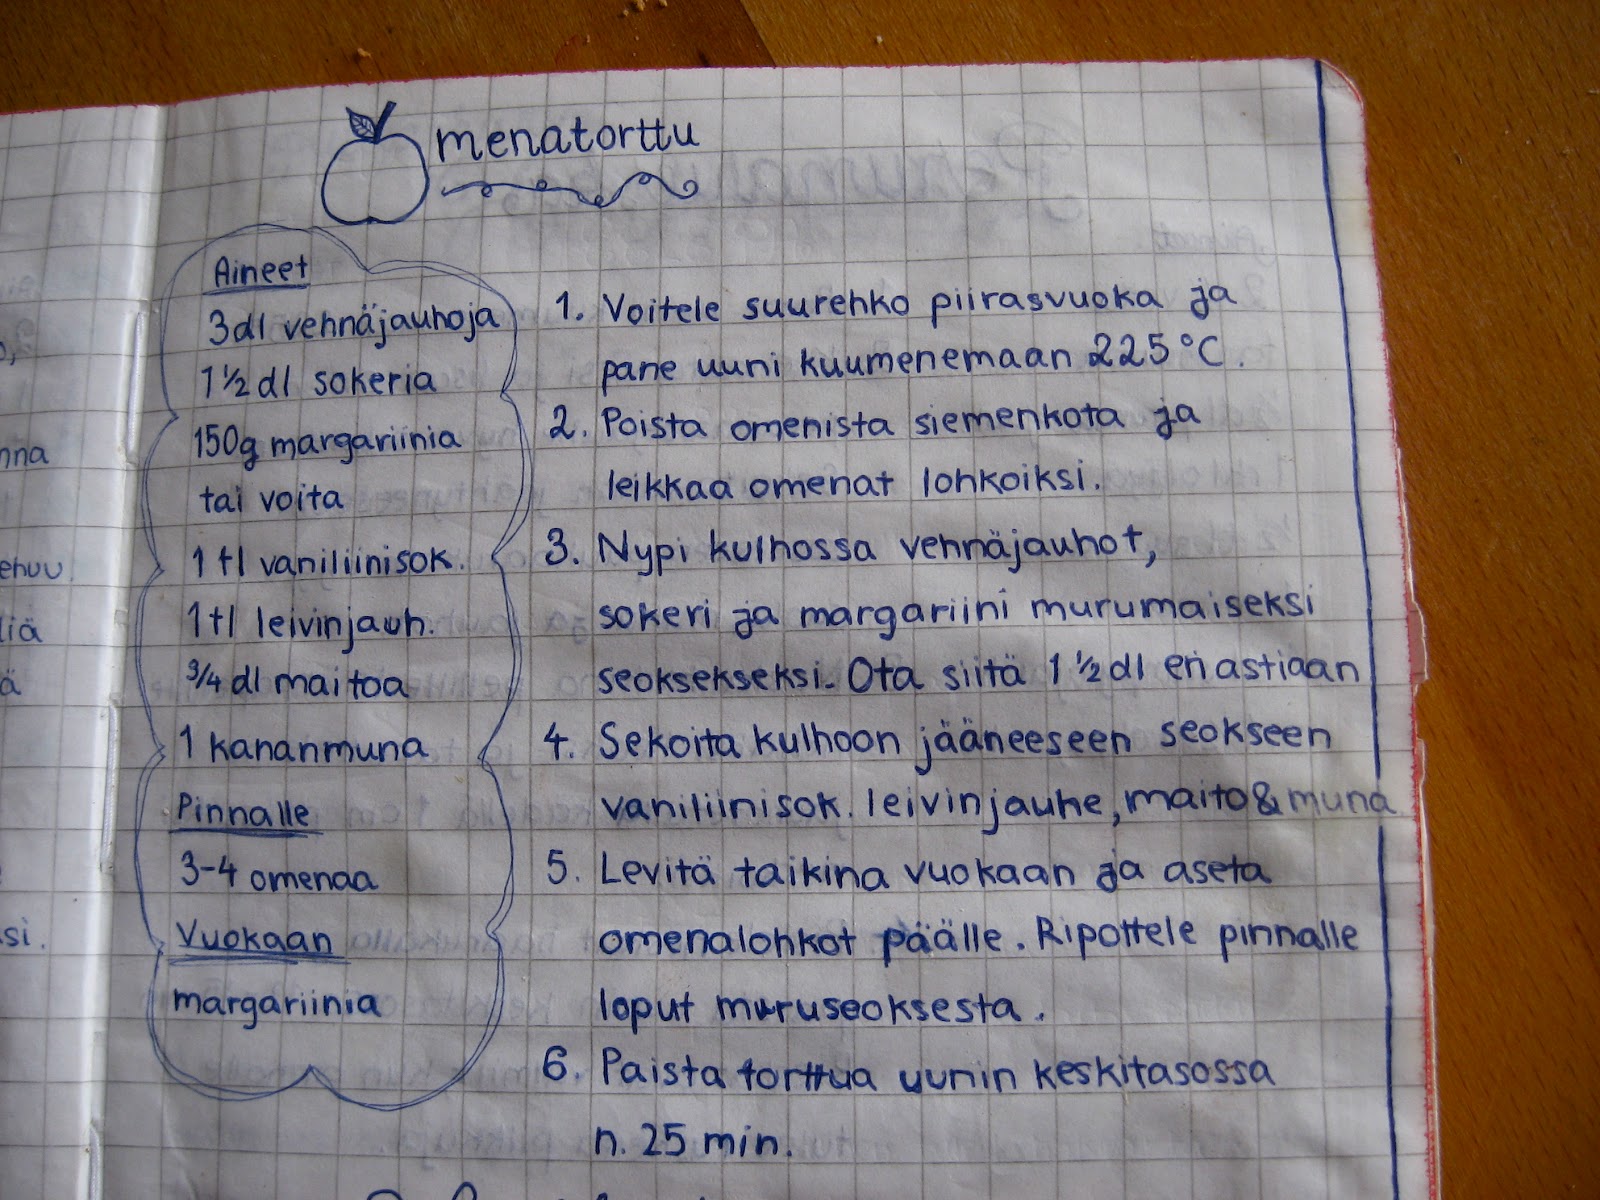 menatorttu
Aineet
3dl vehnäjauhoja
1 ½ dl sokeria
150g margariinia
tai voita
1 tl vaniliinisok.
1 tl leivinjauh.
¾ dl maitoa
1 kananmuna
Pinnalle
3-4 omenaa
Vuokaan
margariinia
1. Voitele suurehko piirasvuoka ja
pane uuni kuumenemaan 225°C.
2. Poista omenista siemenkota ja
leikkaa omenat lohkoiksi.
3. Nypi kulhossa vehnäjauhot,
sokeri ja margariini murumaiseksi
seoksekseksi. Ota siitä 1 ½ dl eri astiaan
4. Sekoita kulhoon jääneeseen seokseen
vaniliinisok. leivinjauhe, maito & muna
5. Levitä taikina vuokaan ja aseta
omenalohkot päälle. Ripottele pinnalle
loput muruseoksesta.
6. Paista torttua uunin keskitasossa
n. 25 min.
nna
ehuu
liä
ä
si.